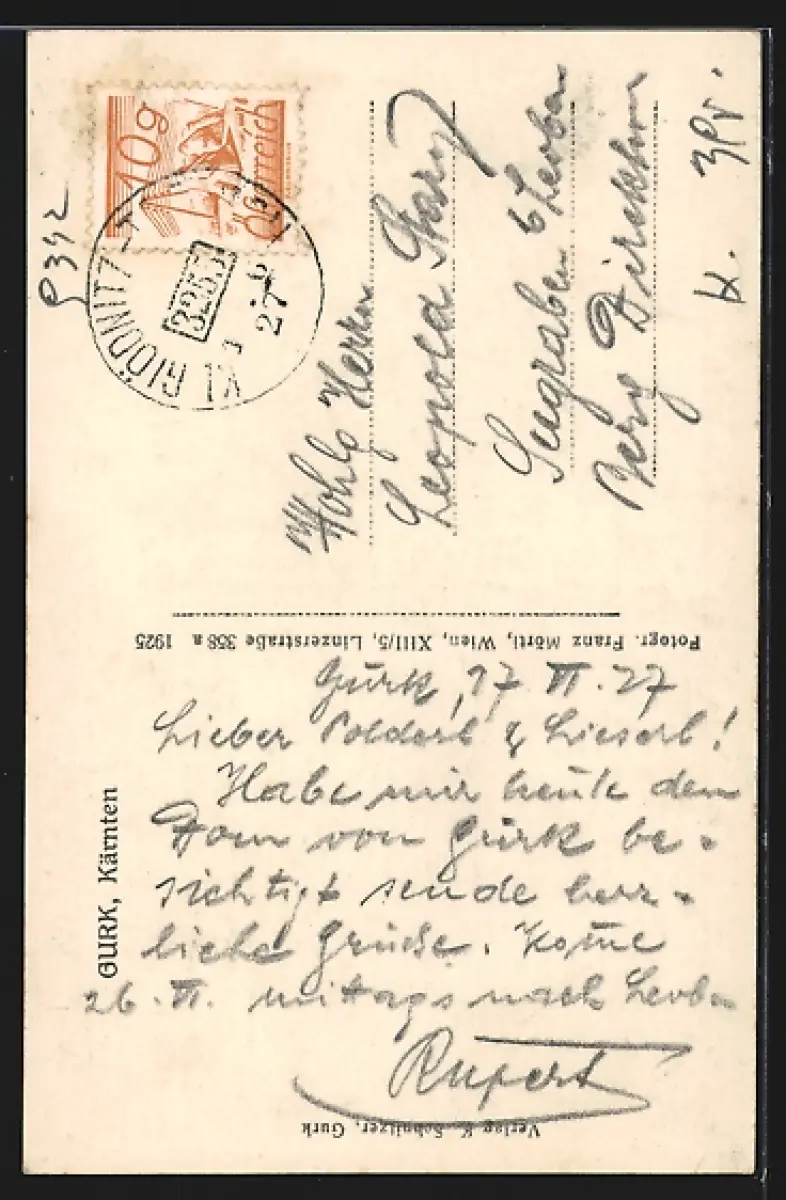 10g
Österreich
KL. GLÖDNITZ-
3255
27
9342
Wohlg Herrn
Leopold
Seegraben b Leoben
Berg Direktion
Fotogr. Franz Mörtl, Wien, XIII/5, Linzerstraße 358 a 1925
GURK, Kärnten
Gurk, 17 VI. 27
Lieber Polderl & Lieserl!
Habe mir heute den
Dom von Gurk be-
sichtigt sende herz-
liche Grüße. Kome
26. VI. mittags nach Leoben
Rupert
Verlag K. Schnitzer, Gurk